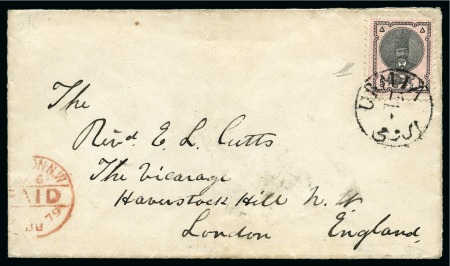 URMIA
The
Revd. E. L. Cutts
The Vicarage
Haverstock Hill N. W
London England
PAID